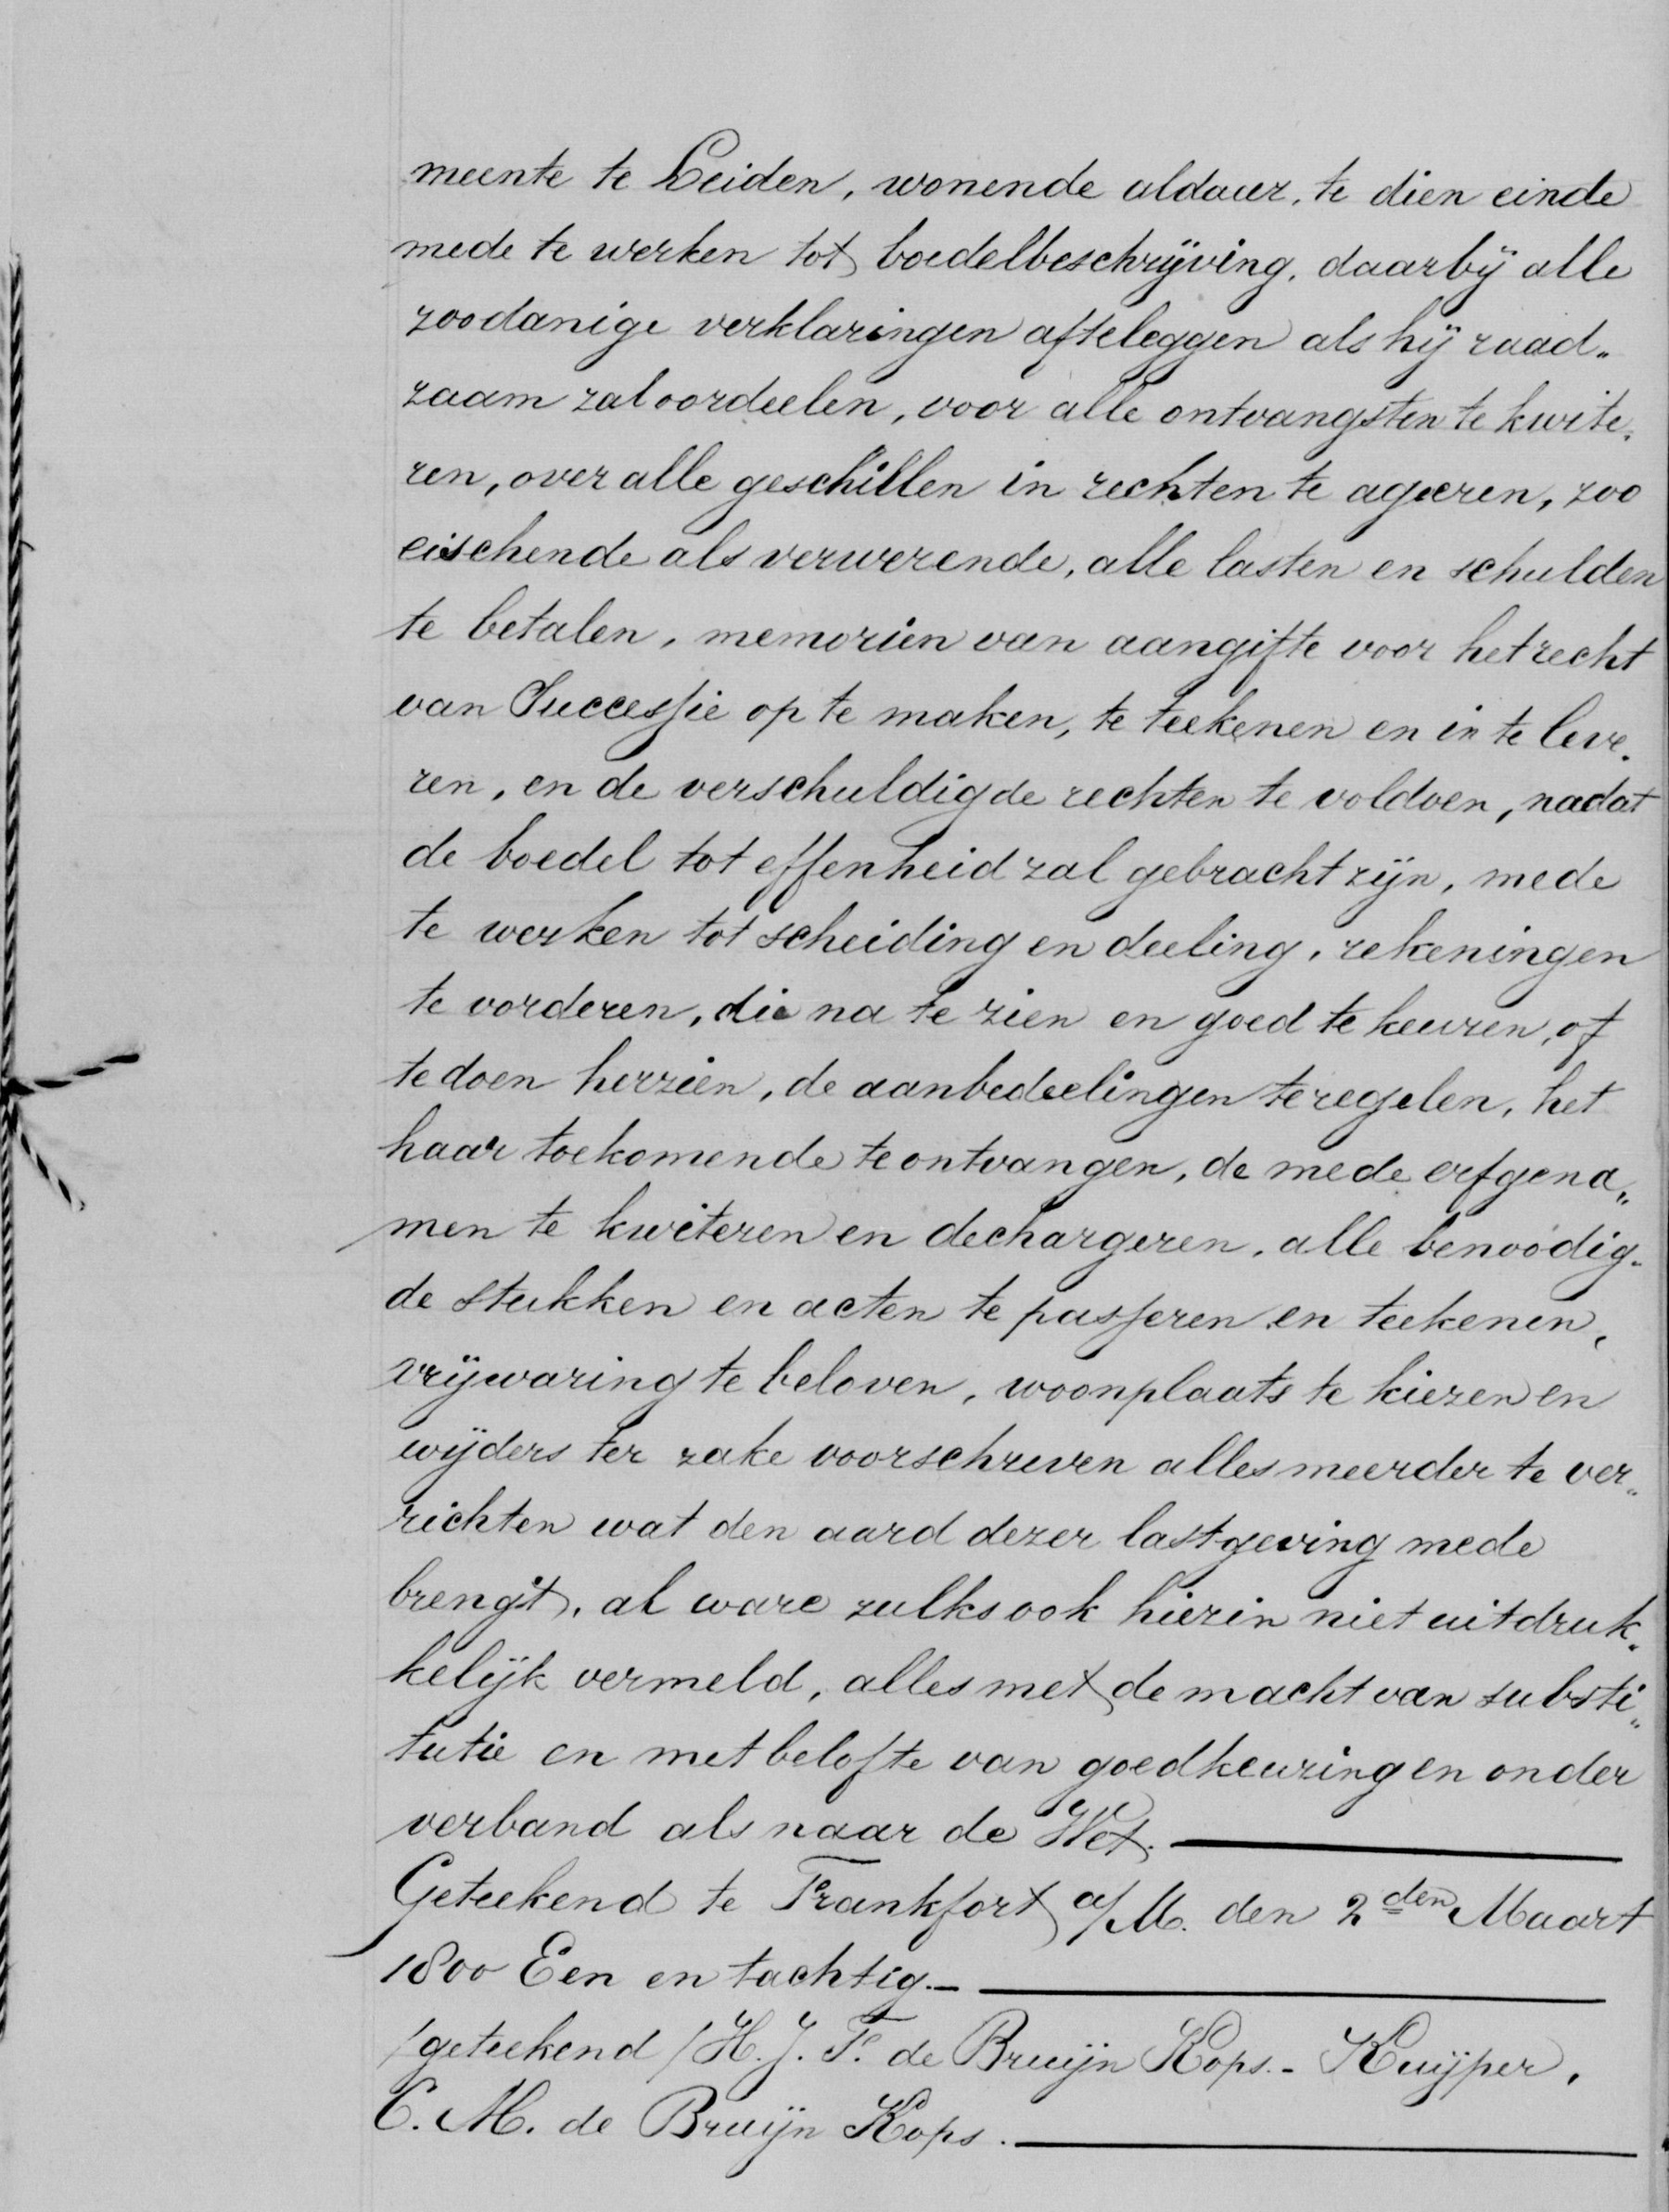 meente te Leiden, wonende aldaar, te dien einde
mede te werken tot boedelbeschrijving, daarbij alle
zoodanige verklaringen afteleggen als hij raad„
zaam zal oordeelen, voor alle ontvangsten te kwite„
ren, over alle geschillen in rechten te ageeren, zoo
eischende als verwerende, alle lasten en schulden
te betalen, memoriën van aangifte voor het recht
van Successie op te maken, te teekenen en in te leve„
ren, en de verschuldigde rechten te voldoen, nadat
de boedel tot effenheid zal gebracht zijn, mede
te werken tot scheiding en deeling, rekeningen
te vorderen, die na te zien en goed te keuren, of
te doen herzien, de aanbedeelingen te regelen, het
haar toekomende te ontvangen, de mede erfgena„
men te kwiteren en dechargeren, alle benoodig„
de stukken en acten te passeren en teekenen,
vrijwaring te beloven, woonplaats te kiezen en
wijders ter zake voorschreven alles meerder te ver„
richten wat den aard dezer lastgeving mede
brengt, al ware zulks ook hierin niet uitdruk„
kelijk vermeld, alles met de macht van substi„
tutie en met belofte van goedkeuring en onder
verband als naar de Wet.
Geteekend te Frankfort a/M. den 2den Maart
1800 Een en tachtig.
/geteekend/ H. J. F. de Bruijn Kops.- Kuijper,
C. M. de Bruijn Kops.